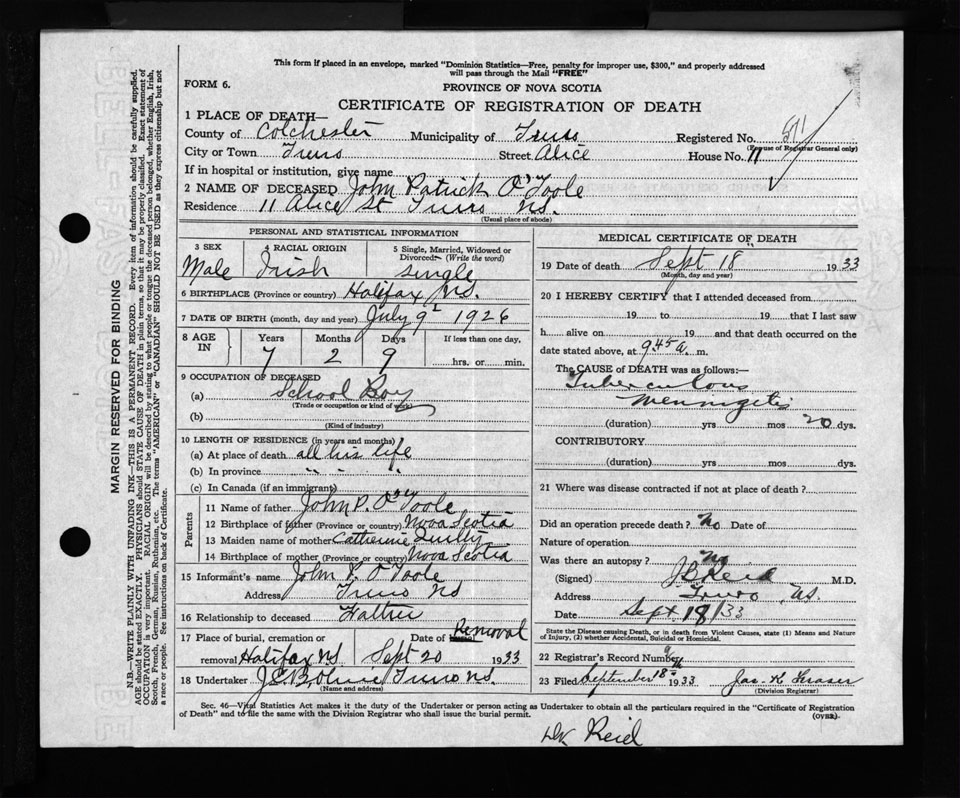 This form if placed in an envelope, marked "Dominion Statistics—Free, penalty for improper use, $300," and properly addressed
will pass through the Mail "FREE"
FORM 6.
PROVINCE OF NOVA SCOTIA
CERTIFICATE OF REGISTRATION OF DEATH
1 PLACE OF DEATH—
County of Colchester Municipality of Truro Registered No.
(For use of Registrar General only)
City or Town Truro Street Alice House No. 11
If in hospital or institution, give name
2 NAME OF DECEASED John Patrick O'Toole
Residence 11 Alice St Truro NS.
(Usual place of abode)
PERSONAL AND STATISTICAL INFORMATION
3 SEX 4 RACIAL ORIGIN 5 Single, Married, Widowed or
Divorced— (Write the word)
Male Irish single
6 BIRTHPLACE (Province or country) Halifax NS.
7 DATE OF BIRTH (month, day and year) July 9 1926
8 AGE IN Years Months Days If less than one day,
7 2 9 hrs. or min.
9 OCCUPATION OF DECEASED
(a) School Boy
(Trade or occupation or kind of work)
(b)
(Kind of industry)
10 LENGTH OF RESIDENCE (in years and months)
(a) At place of death all his life
(b) In province " " "
(c) In Canada (if an immigrant)
Parents
11 Name of father John P. O'Toole
12 Birthplace of father (Province or country) Nova Scotia
13 Maiden name of mother Catherine
14 Birthplace of mother (Province or country) Nova Scotia
15 Informant's name John P. O'Toole
Address Truro NS
16 Relationship to deceased Father
17 Place of burial, cremation or Date of Removal
removal Halifax NS Sept 20 1933
18 Undertaker Truro NS.
(Name and address)
MEDICAL CERTIFICATE OF DEATH
19 Date of death Sept 18" 1933
(Month, day and year)
20 I HEREBY CERTIFY that I attended deceased from
19 to 19 that I last saw
h alive on 19 and that death occurred on the
date stated above, at 9 45 a. m.
The CAUSE OF DEATH was as follows:—
Tuberculous
Meningetis
(duration) yrs mos 20 dys.
CONTRIBUTORY
(duration) yrs mos dys.
21 Where was disease contracted if not at place of death?
Did an operation precede death? No Date of
Nature of operation
Was there an autopsy? No
(Signed) Reid M.D.
Address Truro, NS.
Date Sept. 18/33
State the Disease causing Death, or in death from Violent Causes, state (1) Means and Nature
of Injury, (2) whether Accidental, Suicidal or Homicidal.
22 Registrar's Record Number
23 Filed September 18 1933 Jas. K. Fraser
(Division Registrar)
Sec. 46—Vital Statistics Act makes it the duty of the Undertaker or person acting as Undertaker to obtain all the particulars required in the "Certificate of Registration
of Death" and to file the same with the Division Registrar who shall issue the burial permit. (OVER)
Reid
MARGIN RESERVED FOR BINDING
N.B.—WRITE PLAINLY WITH UNFADING INK—THIS IS A PERMANENT RECORD. Every item of information should be carefully supplied.
AGE should be stated EXACTLY. PHYSICIANS should STATE CAUSE OF DEATH in plain terms, so that it may be properly classified. Exact statement of
OCCUPATION is very important. RACIAL ORIGIN will be described by stating to what people or tongue the deceased person belonged, whether English, Irish,
Scotch, French, German, Russian, Ruthenian, etc. The terms "AMERICAN" or "CANADIAN" SHOULD NOT BE USED as they express citizenship but not
a race or people. See instructions on back of Certificate.